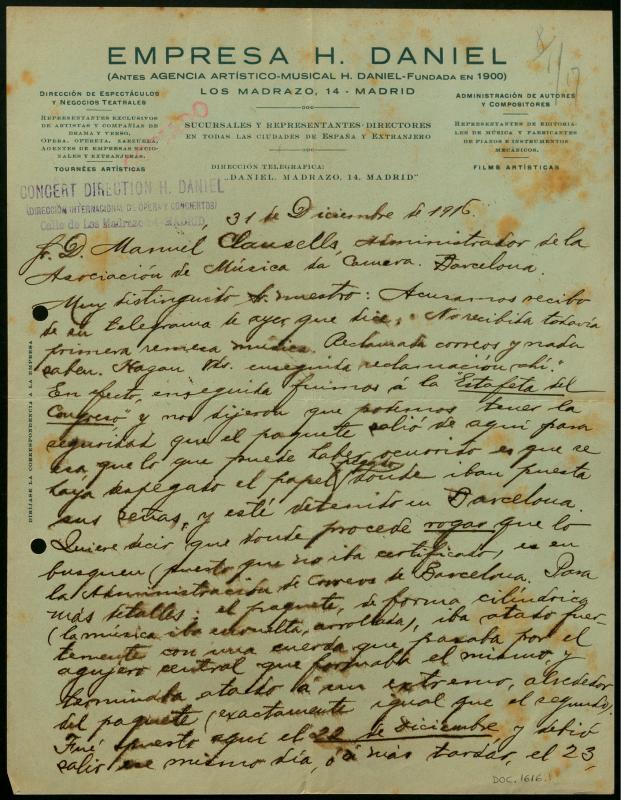 EMPRESA H. DANIEL
(ANTES AGENCIA ARTÍSTICO-MUSICAL H. DANIEL-FUNDADA EN 1900)
LOS MADRAZO, 14 - MADRID
DIRECCIÓN DE ESPECTÁCULOS
Y NEGOCIOS TEATRALES
REPRESENTANTES EXCLUSIVOS
DE ARTISTAS Y COMPAÑIAS DE
DRAMA Y VERSO,
OPERA, OPERETA, ZARZUELA,
AGENTES DE EMPRESAS NACIO-
NALES Y EXTRANJERAS.
TOURNÉES ARTÍSTICAS
SUCURSALES Y REPRESENTANTES-DIRECTORES
EN TODAS LAS CIUDADES DE ESPAÑA Y EXTRANJERO
DIRECCIÓN TELEGRÁFICA:
"DANIEL, MADRAZO, 14, MADRID"
ADMINISTRACIÓN DE AUTORES
Y COMPOSITORES
REPRESENTANTES DE EDITORIA-
LES DE MÚSICA Y FABRICANTES
DE PIANOS E INSTRUMENTOS
MECÁNICOS.
FILMS ARTÍSTICAS
8/1/17
CONCERT DIRECTION H. DANIEL
(DIRECCIÓN INTERNACIONAL DE OPERA Y CONCIERTOS)
Calle de Los Madrazo 14-MADRID
31 de Diciembre de 1916.
Sr. D. Manuel Clausells, Administrador de la
Asociación de Música da Camera. Barcelona.
Muy distinguido Sr. nuestro: Acusamos recibo
de su telegrama de ayer que dice: "No recibida todavía
primera remesa música. Reclamada correos y nada
saben. Hagan Vds. enseguida reclamación ahí."
En efecto, enseguida fuimos á la Estafeta del
Congreso" y nos dijeron que podemos tener la
seguridad que el paquete salió de aquí para
esa que lo que puede haber ocurrido es que se
haya despegado el papel donde iban puesta
sus señas, y esté detenido en Barcelona.
Quiere decir que donde procede rogar que lo
busquen (puesto que no iba certificado) es en
la Administración de Correos de Barcelona. Para
más detalles: el paquete, de forma cilíndrica
(la música iba envuelta, arrollada), iba atado fuer-
temente con una cuerda que pasaba por el
agujero central que formaba el mismo y
terminaba atado á un extremo, alrededor
del paquete (exactamente igual que el segundo).
Fué puesto aquí el 22 de Diciembre y debió
salir ese mismo día, ó á más tardar, el 23,
DIRÍJASE LA CORRESPONDENCIA A LA EMPRESA
DOC. 1616.1